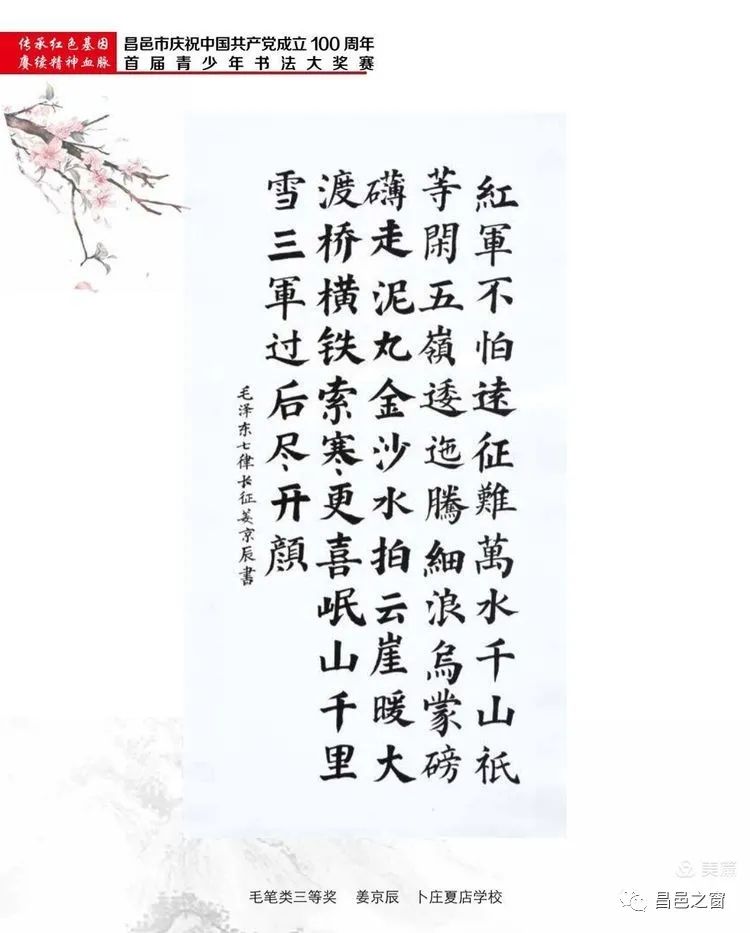 传承红色基因
赓续精神血脉
昌邑市庆祝中国共产党成立100周年
首届青少年书法大奖赛
紅軍不怕逺征難萬水千山祇
等閑五嶺逶迤騰細浪烏蒙磅
礴走泥丸金沙水拍云崖暖大
渡桥横铁索寒更喜岷山千里
雪三軍过后尽开顔
毛泽东七律长征姜京辰書
毛笔类三等奖 姜京辰 卜庄夏店学校
美篇
昌邑之窗